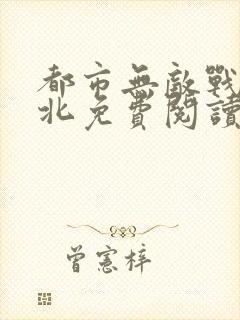 都市無敵戰
北免費閱讀
曾憲梓